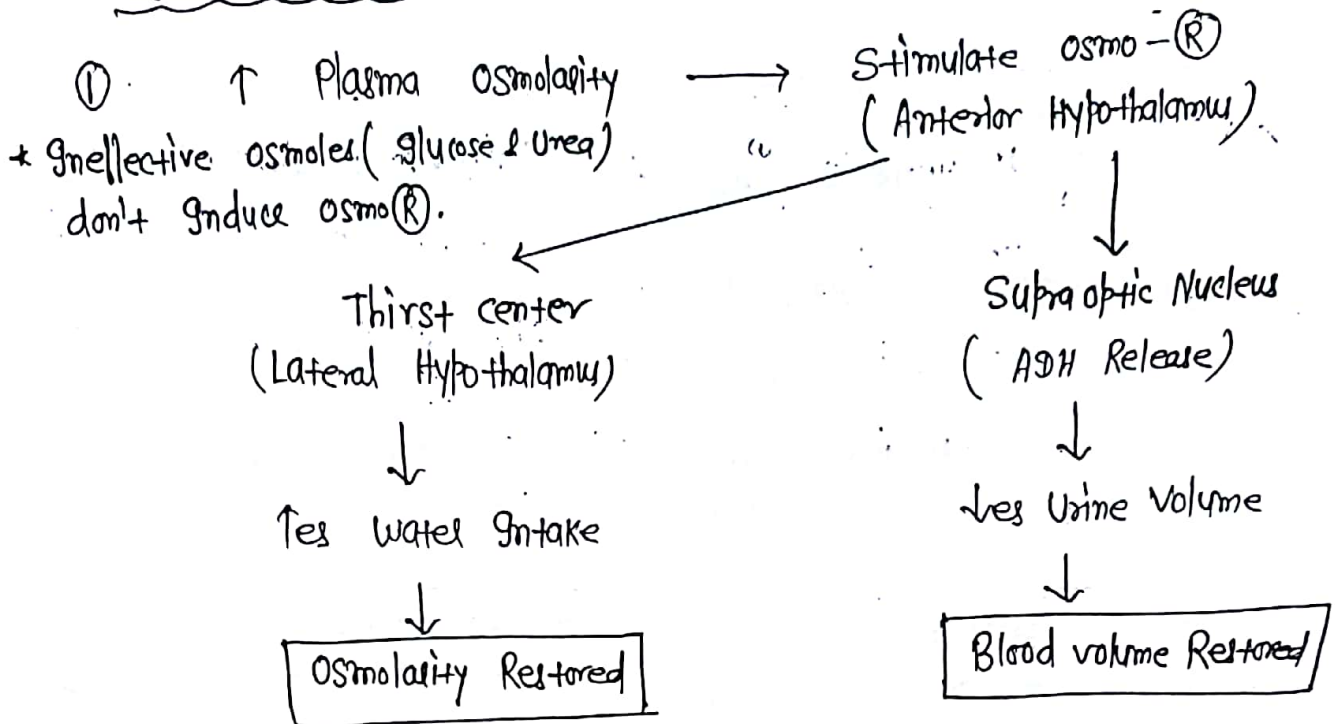 ① ↑ Plasma Osmolarity → Stimulate osmo-Ⓡ
(Anterior Hypothalamus).
* Ineffective osmoles (glucose & Urea)
don't Induce osmoⓇ.
Thirst center
(Lateral Hypothalamus)
↓
↑es water Intake
↓
Osmolarity Restored
Supraoptic Nucleus
(ADH Release)
↓
↓es Urine Volume
↓
Blood volume Restored